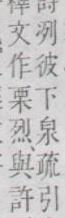 詩冽彼下泉疏引
釋文作栗烈與許